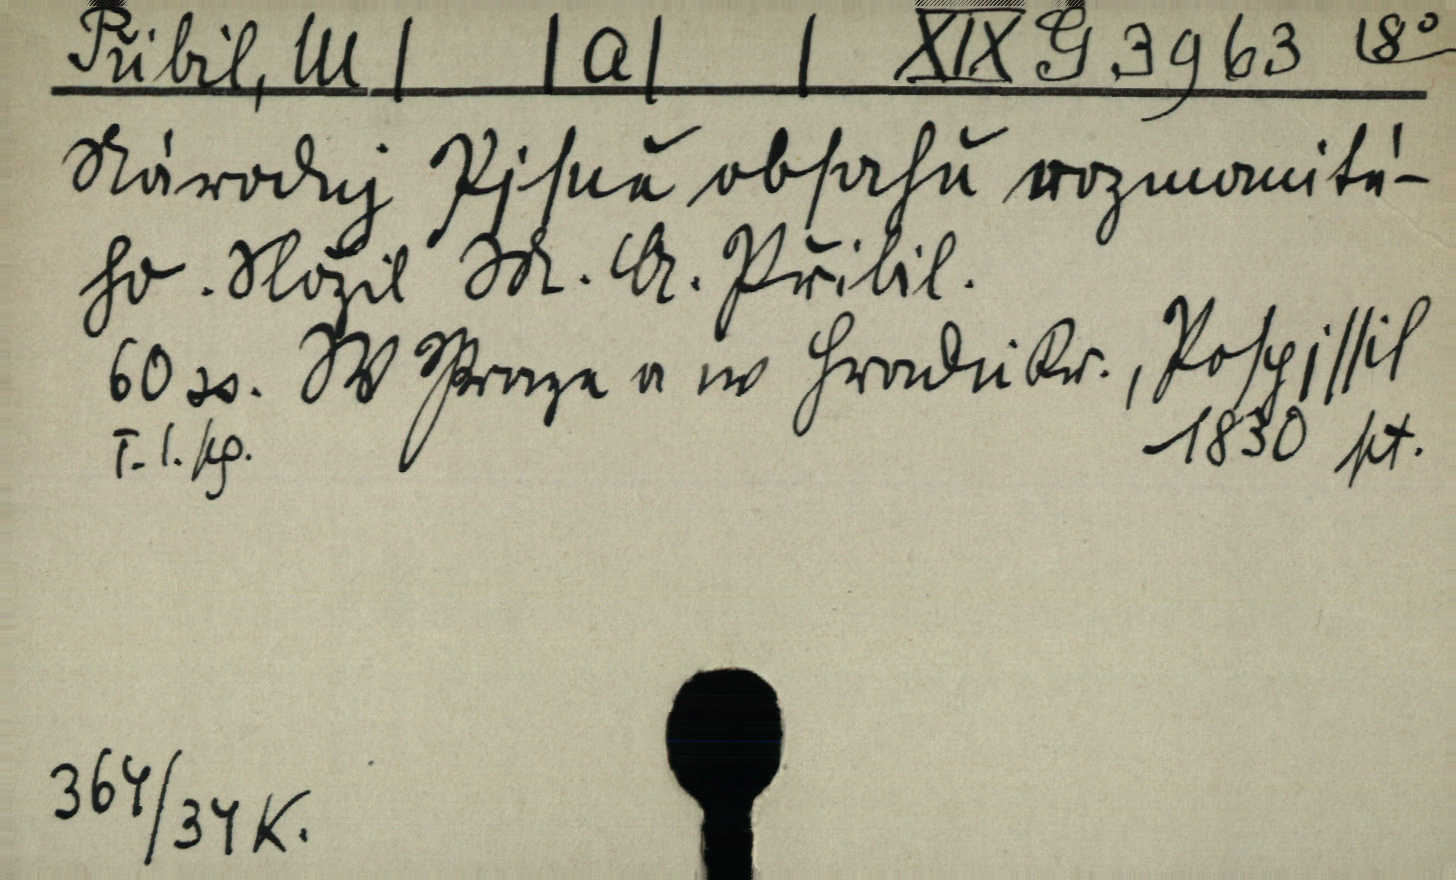 Přibil, M | | a | | XIX G 3963 18°
Národnj Pjsně obsahu rozmanité-
ho. Složil M. A. Přibil.
60 ss. W Praze a w Hradci Kr., Pospjssil
T. l. sp. 1830 pt.
364/34 K.